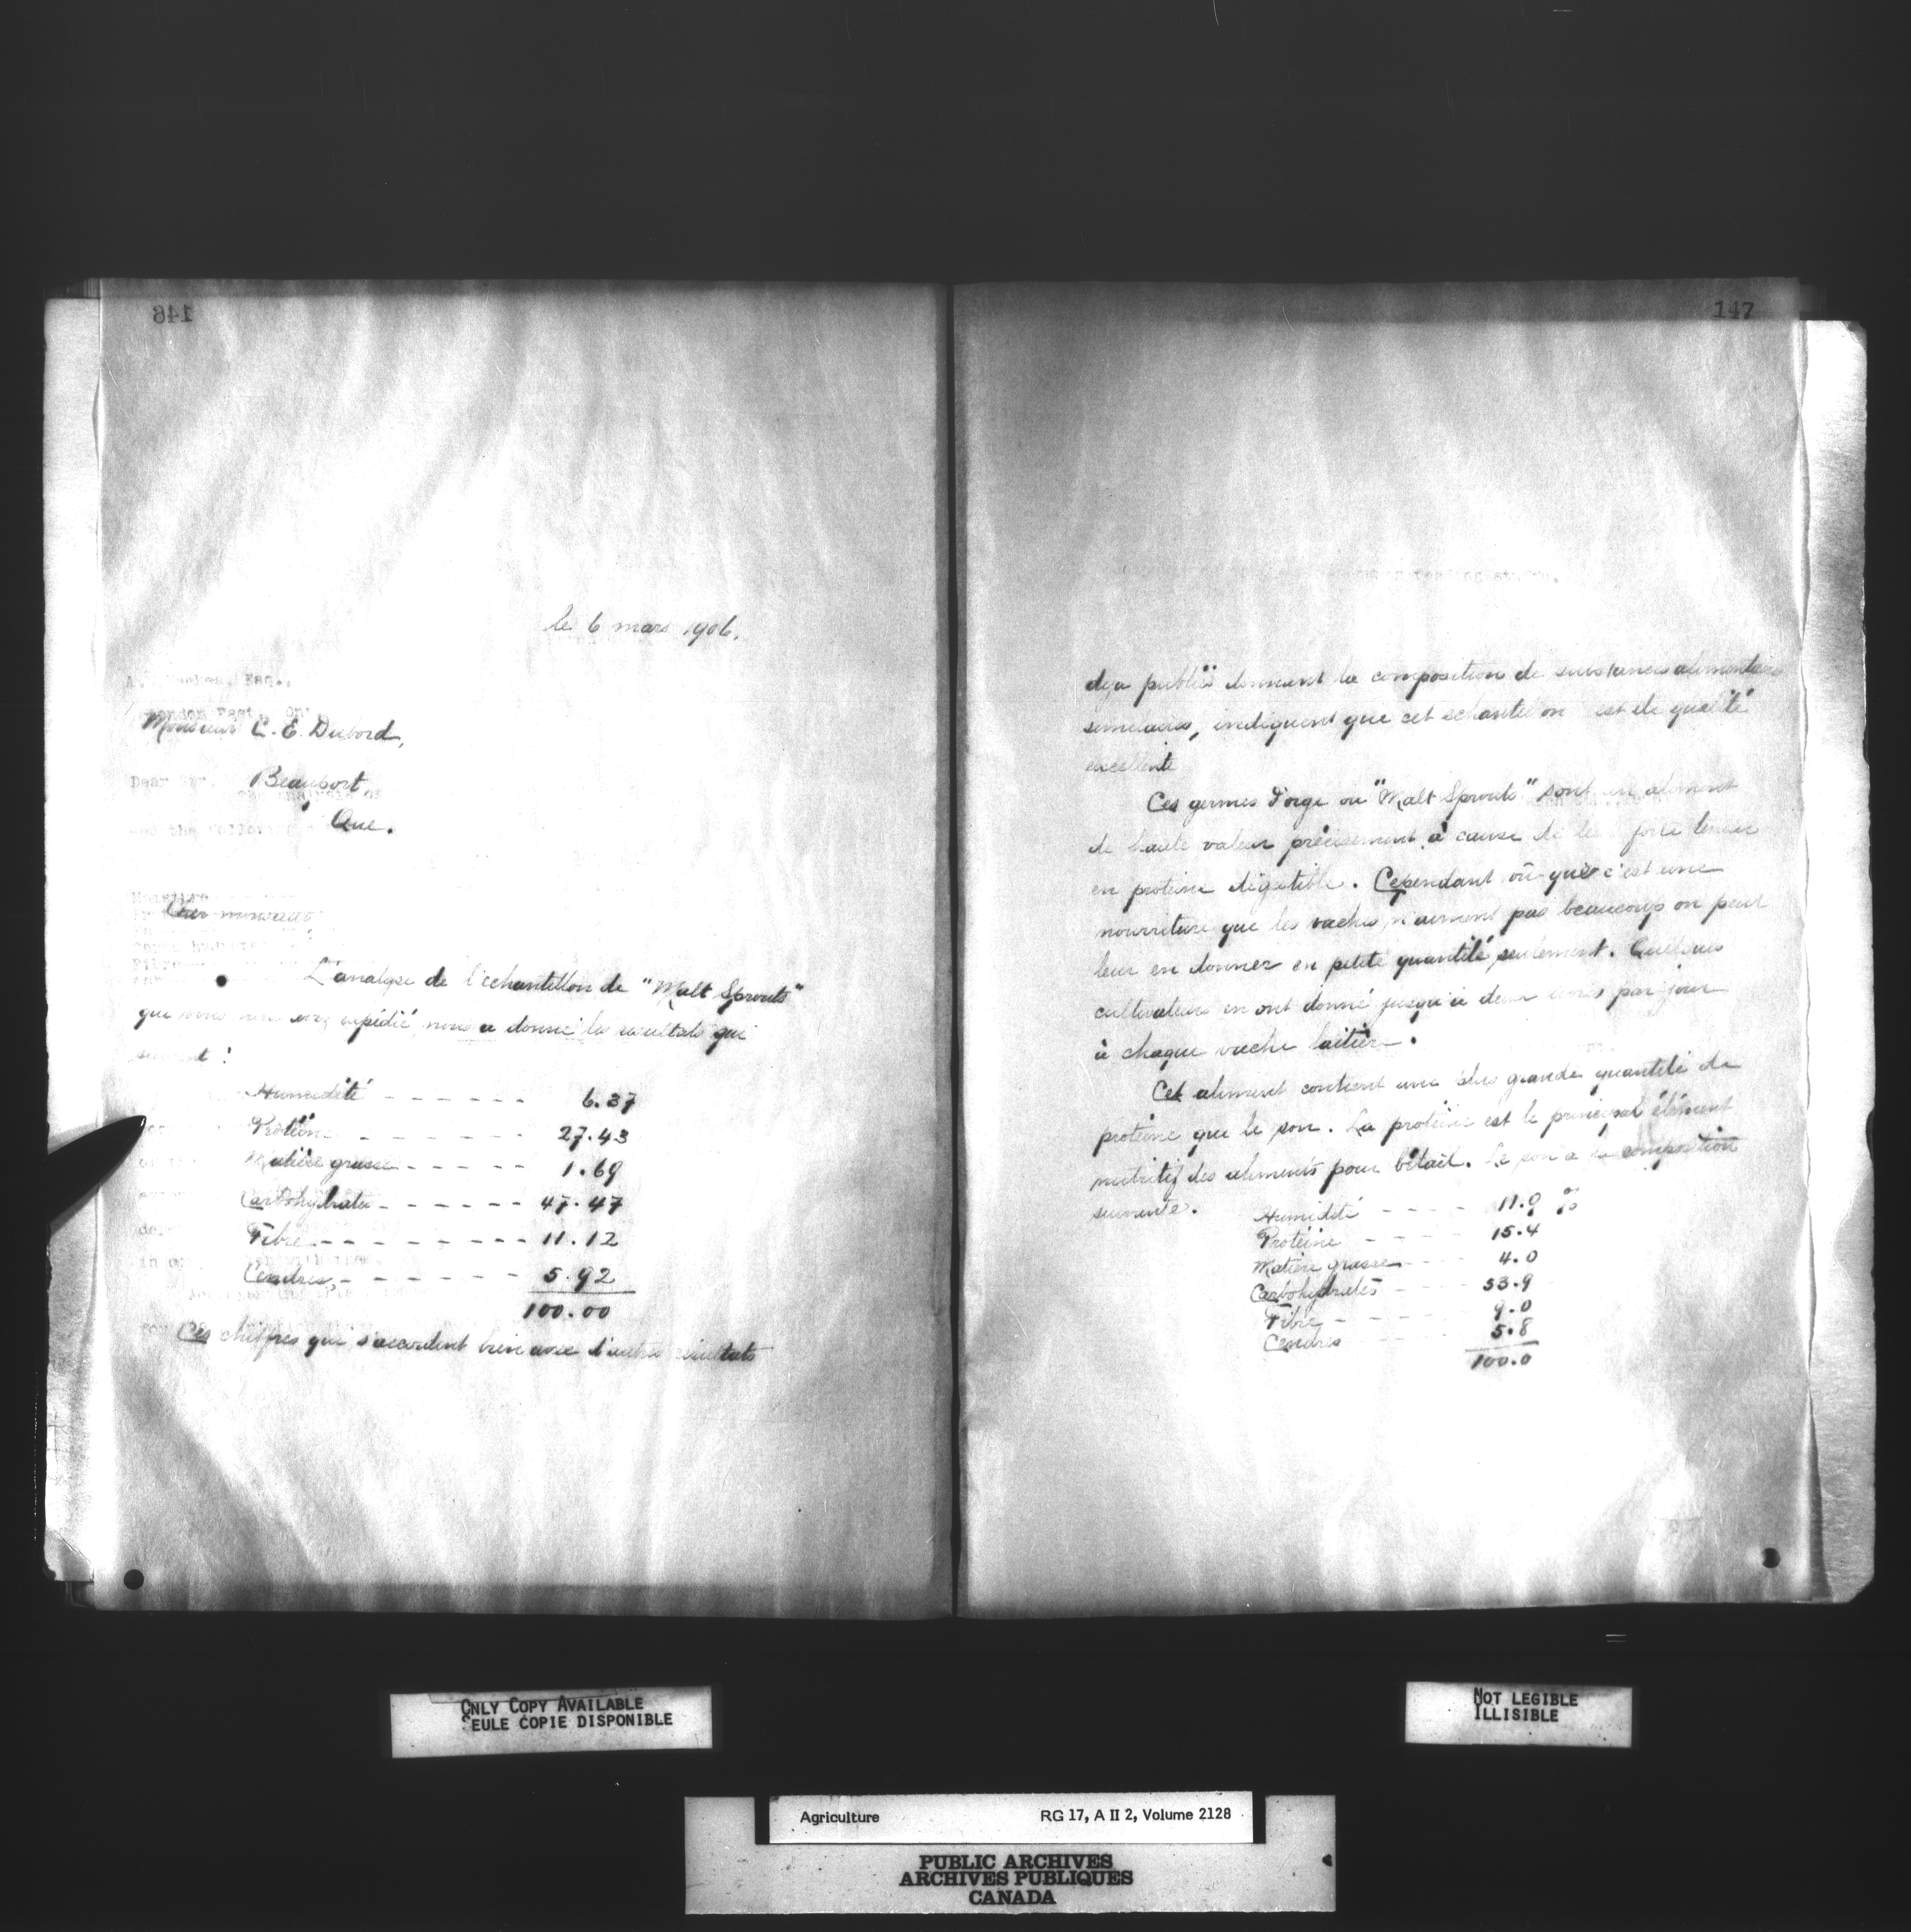 146
le 6 mars 1906.
Monsieur C. E. Dubord,
Beauport
Que.
Cher monsieur
L'analyse de l'echantillon de "Malt Sprouts"
que vous expédié nous a donné les resultats qui
suivent :
Humidité - - - - - - 6.37
Protéine - - - - - - 27.43
Matière grasse - - - - - 1.69
Carbohydrates - - - - - - 47.47
Fibre - - - - - - - - - 11.12
Cendres, - - - - - - - 5.92
100.00
Ces chiffres qui s'accordent bien avec d'autres résultats
147
deja publiés donnant la composition de substances alimentaires
similaires, indiquent que cet echantillon est de qualité
excellente
Ces germes d'orge ou "Malt Sprouts" sont un aliment
de haute valeur précisement à cause de leur forte teneur
en proteine digestible. Cependant vû que c'est une
nourriture que les vaches n'aiment pas beaucoup on peut
leur en donner en petite quantité seulement. Quelques
cultivateurs en ont donné jusqu'à deux livres par jour
à chaque vache laitière.
Cet aliment contient une plus grande quantité de
protéine que le son. La protéine est le principal élément
nutritif des aliments pour bétail. Le son a la composition
suivante.
Humidité - - - - 11.9 %
Protéine - - - 15.4
Matière grasse - - - 4.0
Carbohydrates - - 53.9
Fibre - - - 9.0
Cendres - - - 5.8
100.0
ONLY COPY AVAILABLE
SEULE COPIE DISPONIBLE
NOT LEGIBLE
ILLISIBLE
Agriculture RG 17, A II 2, Volume 2128
PUBLIC ARCHIVES
ARCHIVES PUBLIQUES
CANADA